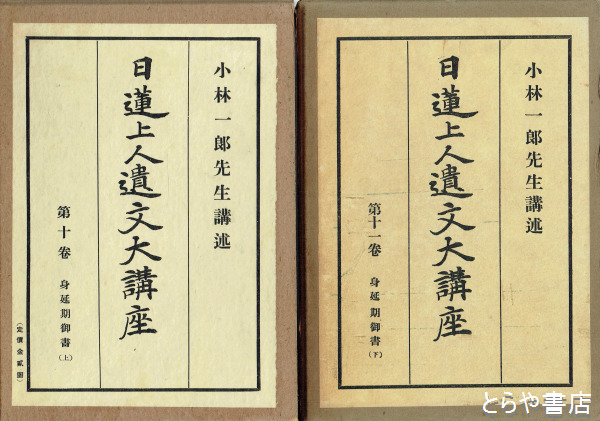 小林一郎先生講述
日蓮上人遺文大講座
第十卷 身延期御書(上)
(定價金貳圓)
小林一郎先生講述
日蓮上人遺文大講座
第十一卷 身延期御書(下)
とらや書店